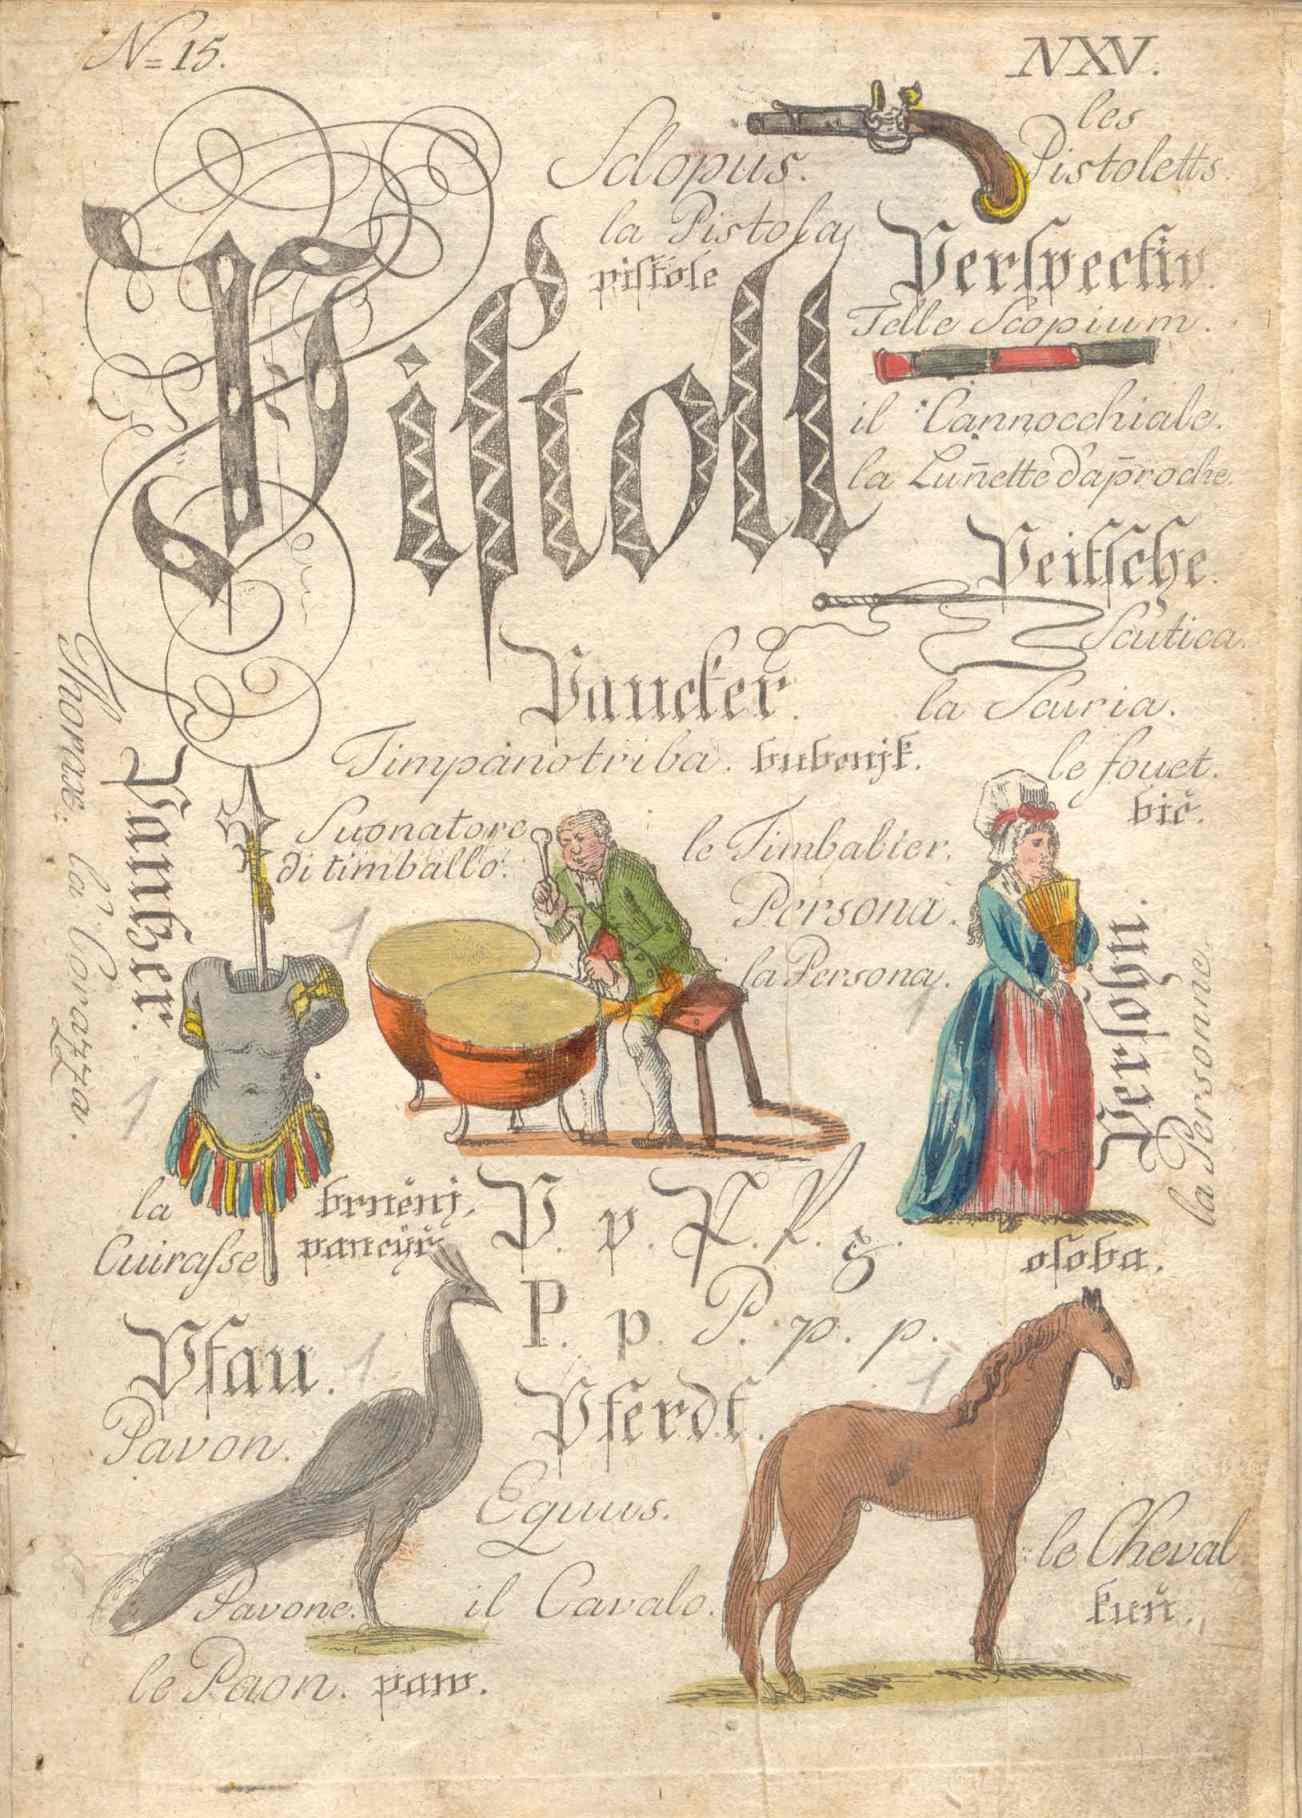 N=15.
NXV.
Pistoll
Sclopus.
la Pistola
pistole
les
Pistoletts.
Perspectiv.
Telle Scopium.
il Cannocchiale.
la Lun̄ette d'ap̄roche.
Peitsche.
Scutica.
la Scuria.
le fouet.
bič.
Paucker.
Timpanotriba. bubenjk.
Suonatore
di timballo.
le Timbalier.
Persona.
la Persona.
Persohn.
la Personne.
osoba.
Pantzer.
Thorax. la Corazza.
la
Cuirasse
brněnj,
pancýř
P. p. P. P. p.
P. p. P. p. p.
Pfau.
Pavon.
Pavone.
le Paon. paw.
Pferdt.
Equus.
il Cavalo.
le Cheval
kuň.